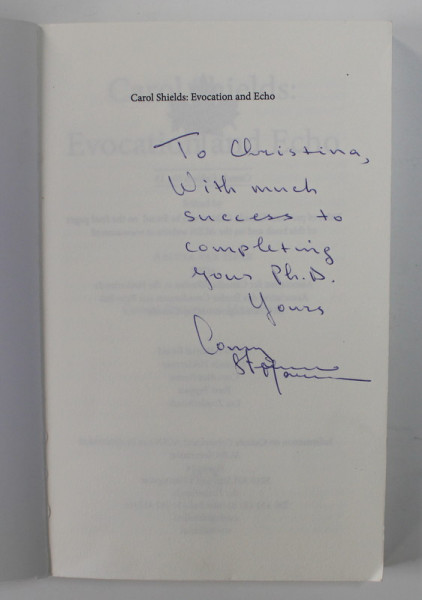 Carol Shields: Evocation and Echo
To Christina,
With much
success to
completing
your Ph.D.
Yours
Conny